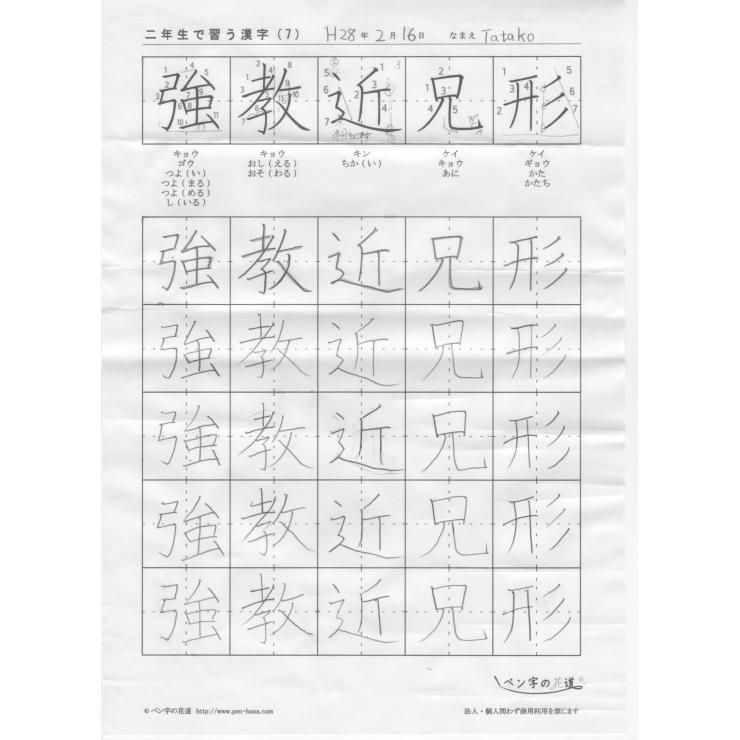 二年生で習う漢字(7) H28年2月16日 なまえ Tatako
強 教 近 兄 形
キョウ キョウ キン ケイ ケイ
ゴウ おし(える) ちか(い) キョウ ギョウ
つよ(い) おそ(わる) あに かた
つよ(まる) かたち
つよ(める)
し(いる)
強 教 近 兄 形
強 教 近 兄 形
強 教 近 兄 形
強 教 近 兄 形
強 教 近 兄 形
ペン字の花道
© ペン字の花道 http://www.pen-hana.com 法人・個人問わず商用利用を禁じます